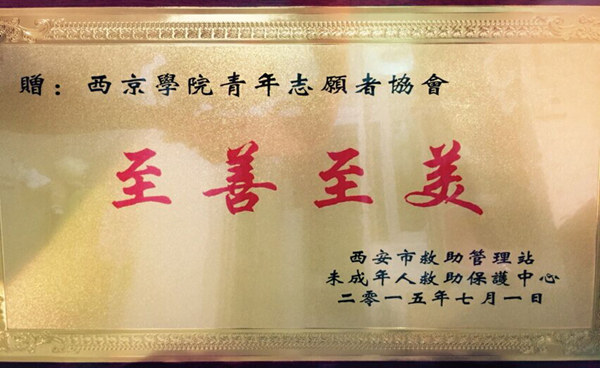 贈：西京學院青年志願者協會
至善至美
西安市救助管理站
未成年人救助保護中心
二零一五年七月一日